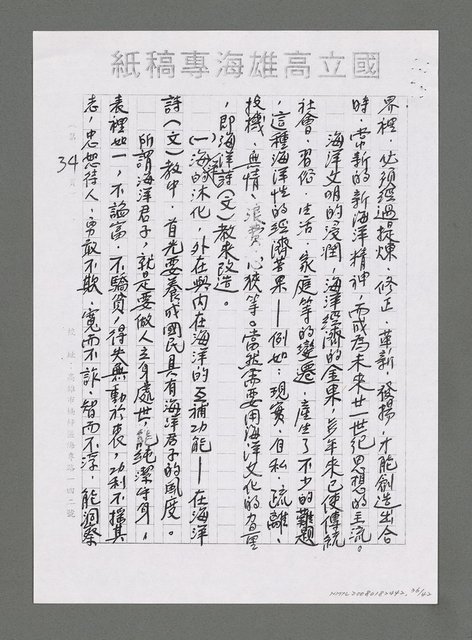 國立高雄海專稿紙
界裡，必須經過提煉、修正、革新、發揚，才能創造出合
時、常新的新海洋精神，而成為未來廿一世紀思想的主流。
海洋文明的浸潤，海洋經濟的金果，多年來已使傳統
社會、習俗、生活、家庭等的變遷，產生了不少的難題
，這種海洋性的經濟苦果——例如：現實、自私、疏離、
投機、無情、浪費、心狹等。當然需要用海洋文化的
，即海洋詩（文）教來改造。
(一)海的沐化，外在與內在海洋的互補功能——在海洋
詩（文）教中，首先要養成國民具有海洋君子的風度。
所謂海洋君子，就是要做人立身處世，能純潔守身，
表裡如一，不諂富、不驕貧，得失無動於衷，功利不搖其
志，忠恕待人，勇敢不欺，寬而不詐，智而不浮，能洞察
34
HMTL20080182442, 36/42